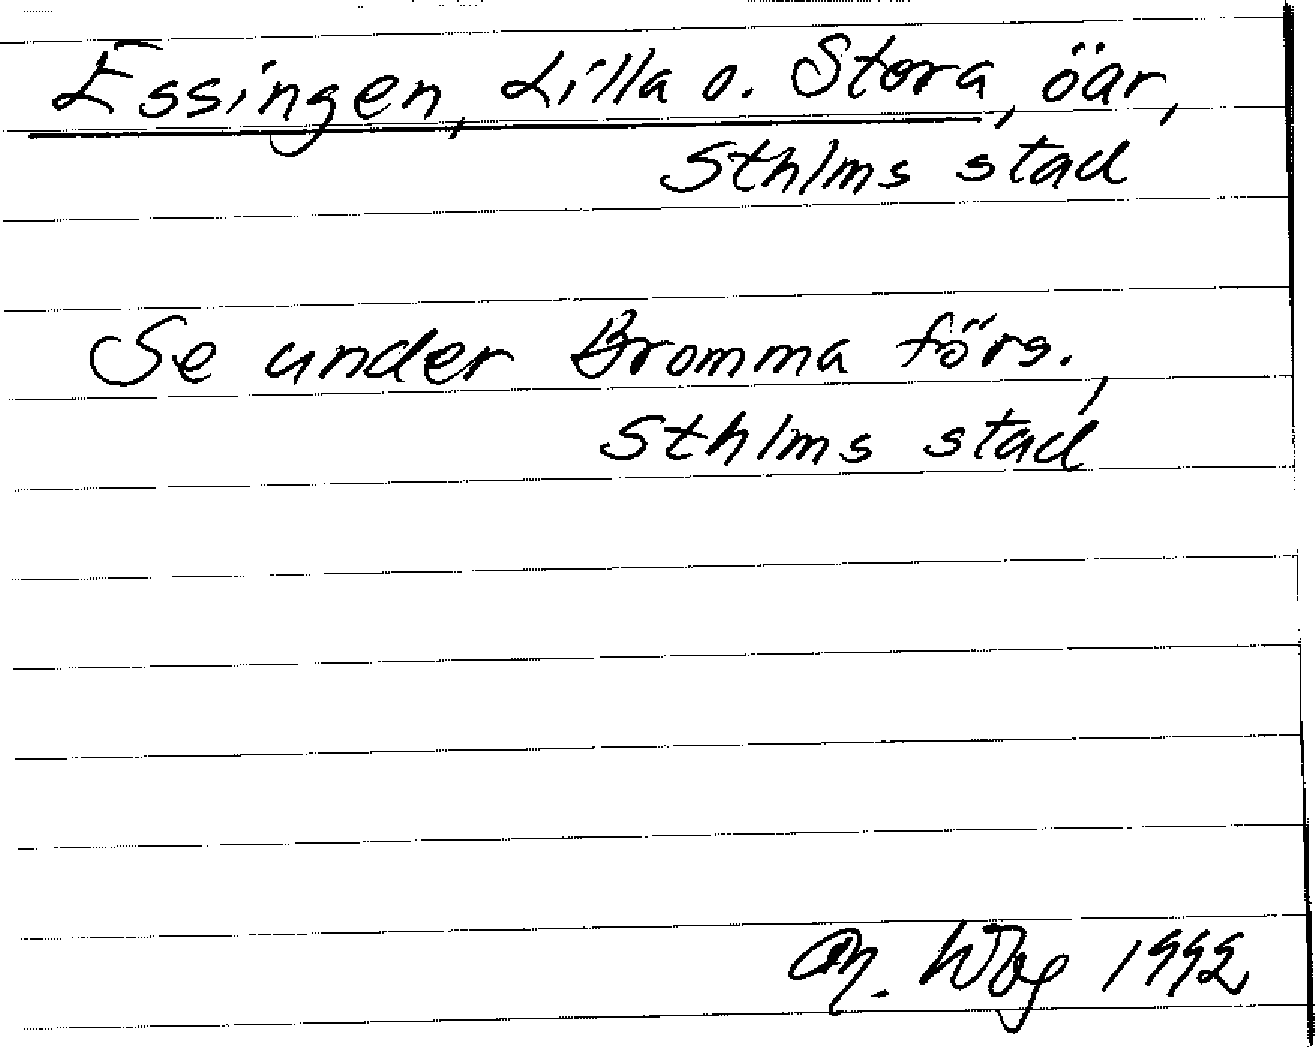 Essingen, Lilla o. Stora, öar,
Sthlms stad
Se under Bromma förs.,
Sthlms stad
1992